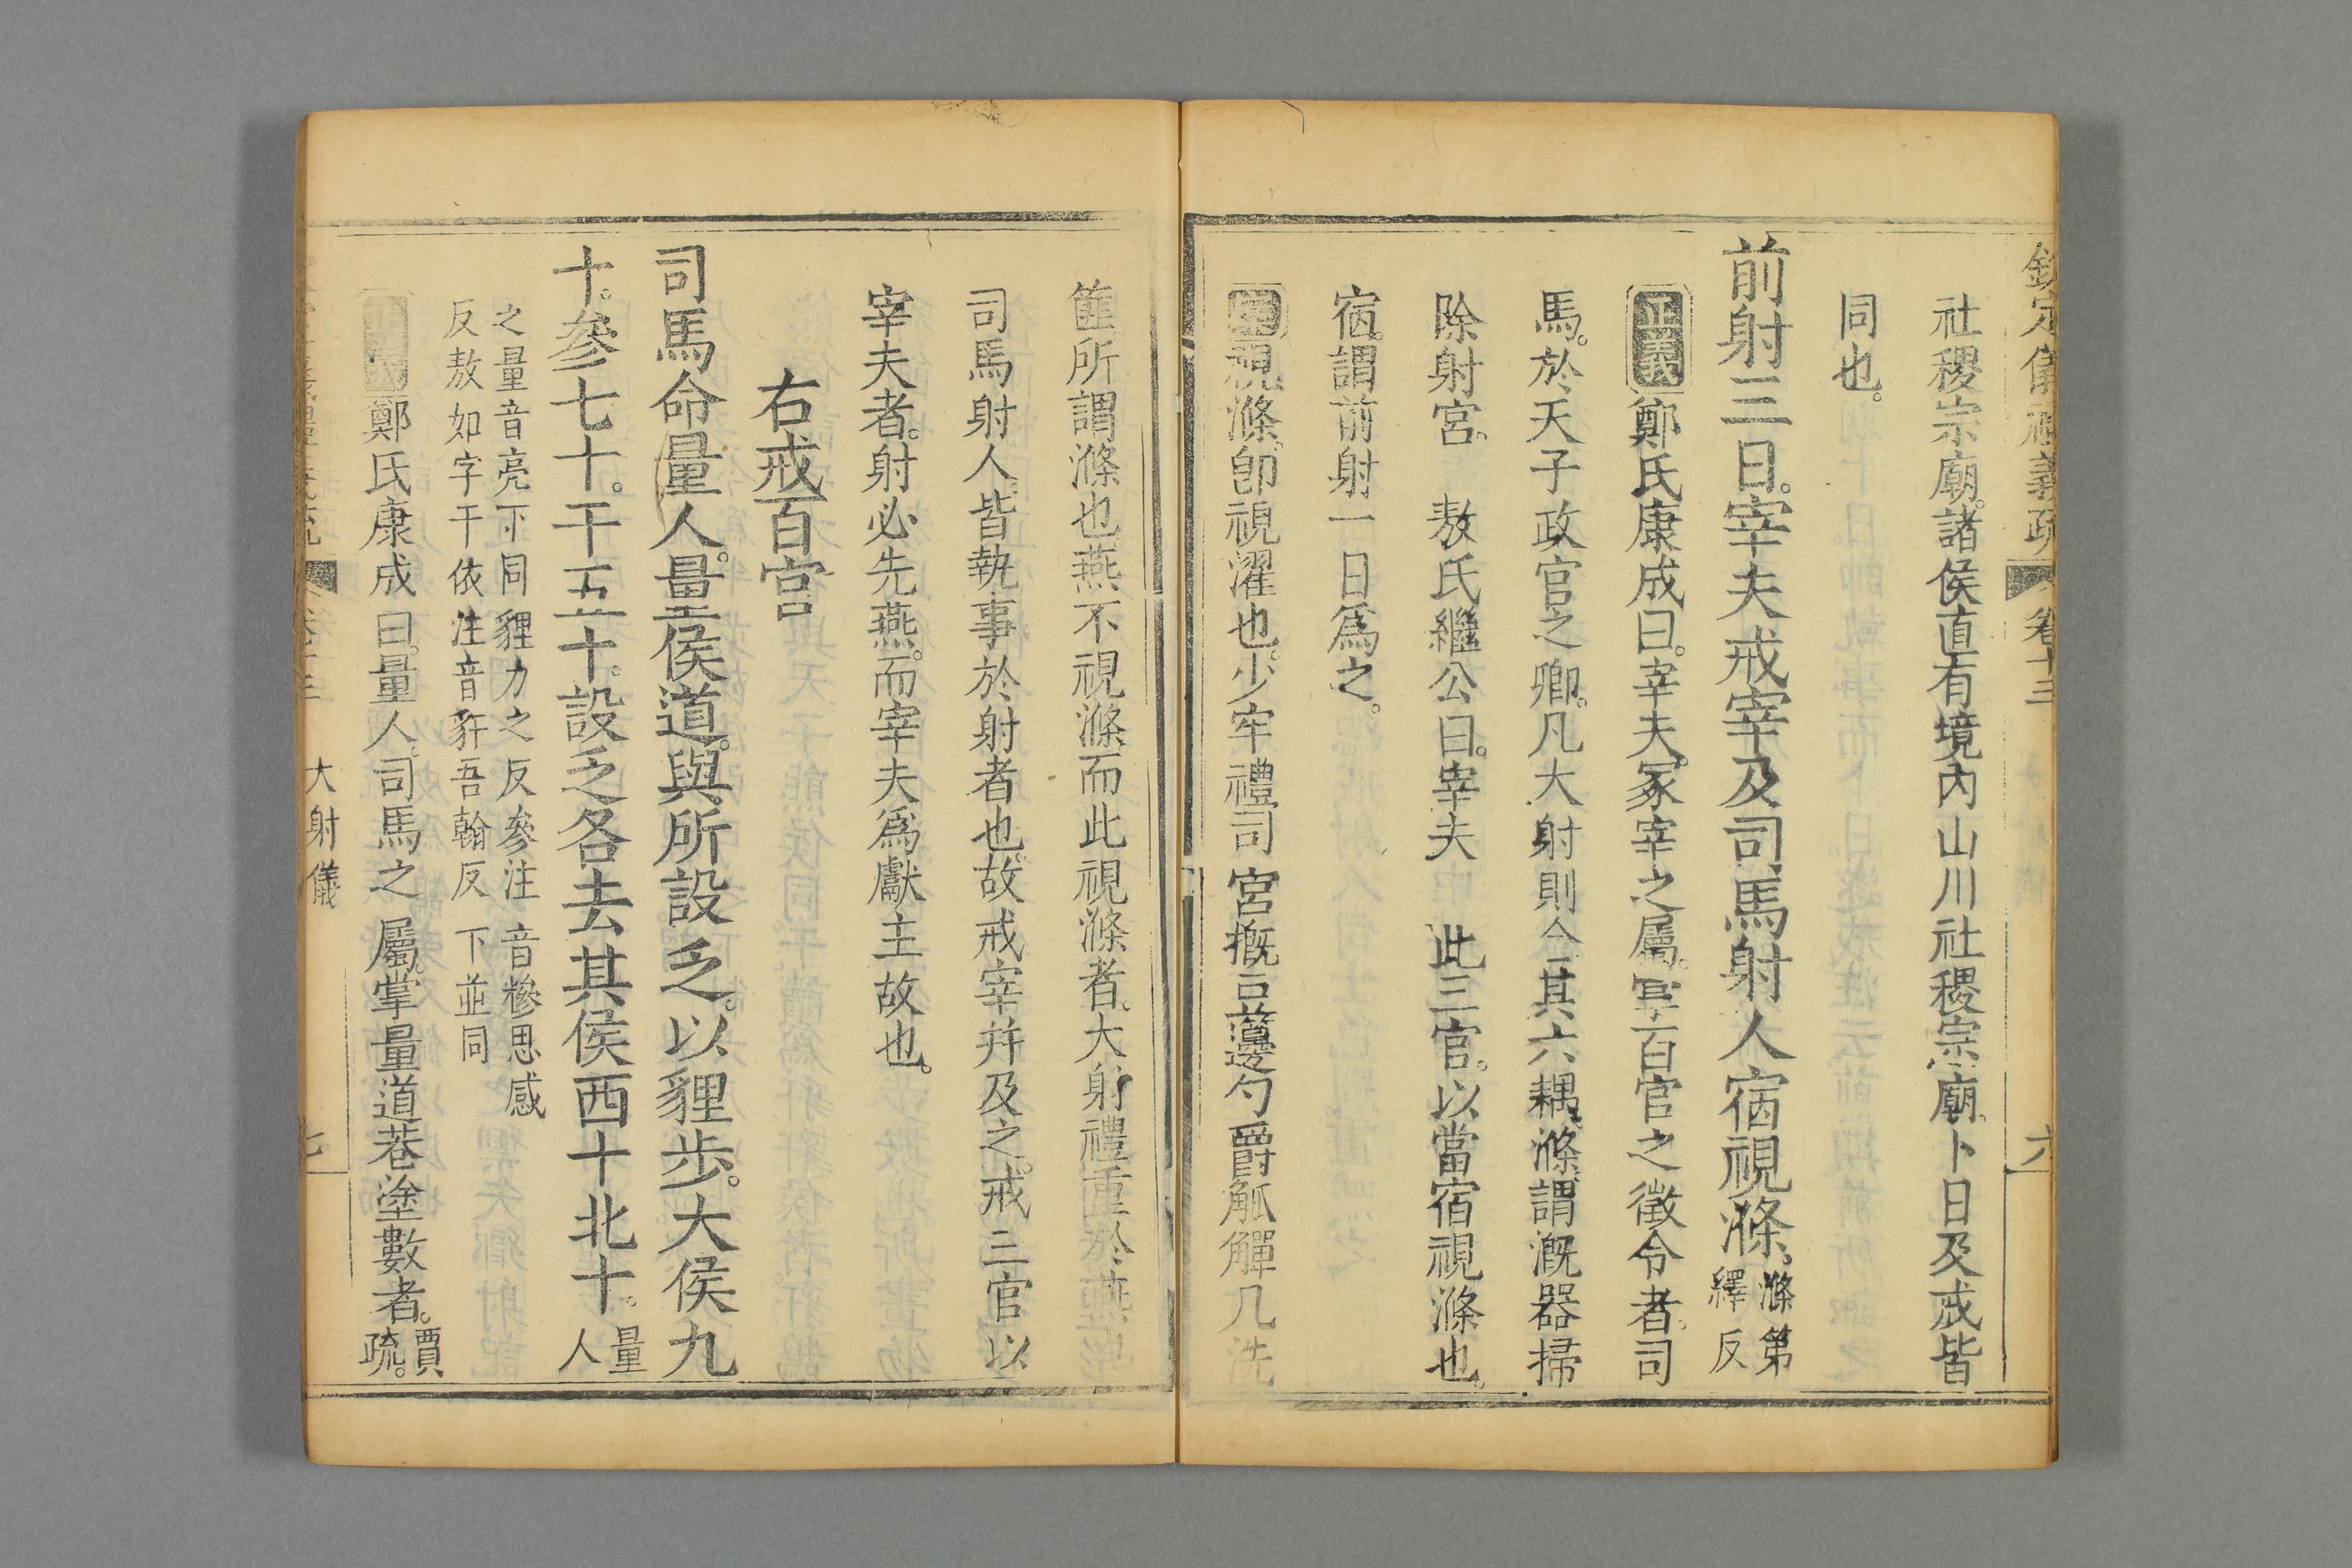 欽定儀禮義疏 卷十三 六
社稷宗廟。諸侯直有境內山川社稷宗廟。卜日及戒皆
同也。
前射三日。宰夫戒宰及司馬射人宿視滌。滌第
繹反
正義鄭氏康成曰。宰夫。冢宰之屬。掌百官之徵令者。司
馬。於天子政官之卿。凡大射則合其六耦。滌。謂溉器掃
除射宮。 敖氏繼公曰。宰夫 此三官。以當宿視滌也。
宿。謂前射一日爲之。
視滌。卽視濯也。少牢禮司宮摡豆籩勺爵觚觶几洗
篚所謂滌也。燕不視滌而此視滌者。大射禮重於燕也
司馬射人。皆執事於射者也。故戒宰幷及之。戒三官以
宰夫者。射必先燕。而宰夫爲獻主故也。
右戒百官
司馬命量人。量侯道。與所設乏。以貍步。大侯九
十。參七十。干五十。設乏各去其侯西十北十。量
人
之量音亮下同貍力之反參注音糝思感
反敖如字干依注音豻吾翰反下並同
正義鄭氏康成曰。量人。司馬之屬。掌量道巷塗數者。賈
疏。
卷十三 大射儀 七